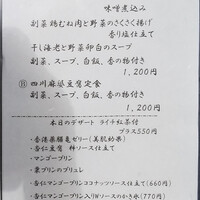 味噌煮込み
副菜 鶏むね肉と野菜のさくさく揚げ
香り塩仕立て
干し海老と野菜卵白のスープ
副菜、スープ、白飯、香の物付き
1,200円
Ⓑ 四川麻婆豆腐定食
副菜、スープ、白飯、香の物付き
1,200円
本日のデザート ライチ紅茶付
プラス550円
・香港薬膳亀ゼリー(美肌効果)
・杏仁豆腐 杏ソース仕立て
・マンゴープリン
・栗プリンのブリュレ
・杏仁マンゴープリンココナッツソース仕立て(660円)
・杏仁マンゴープリン入りWソースのかき氷(770円)